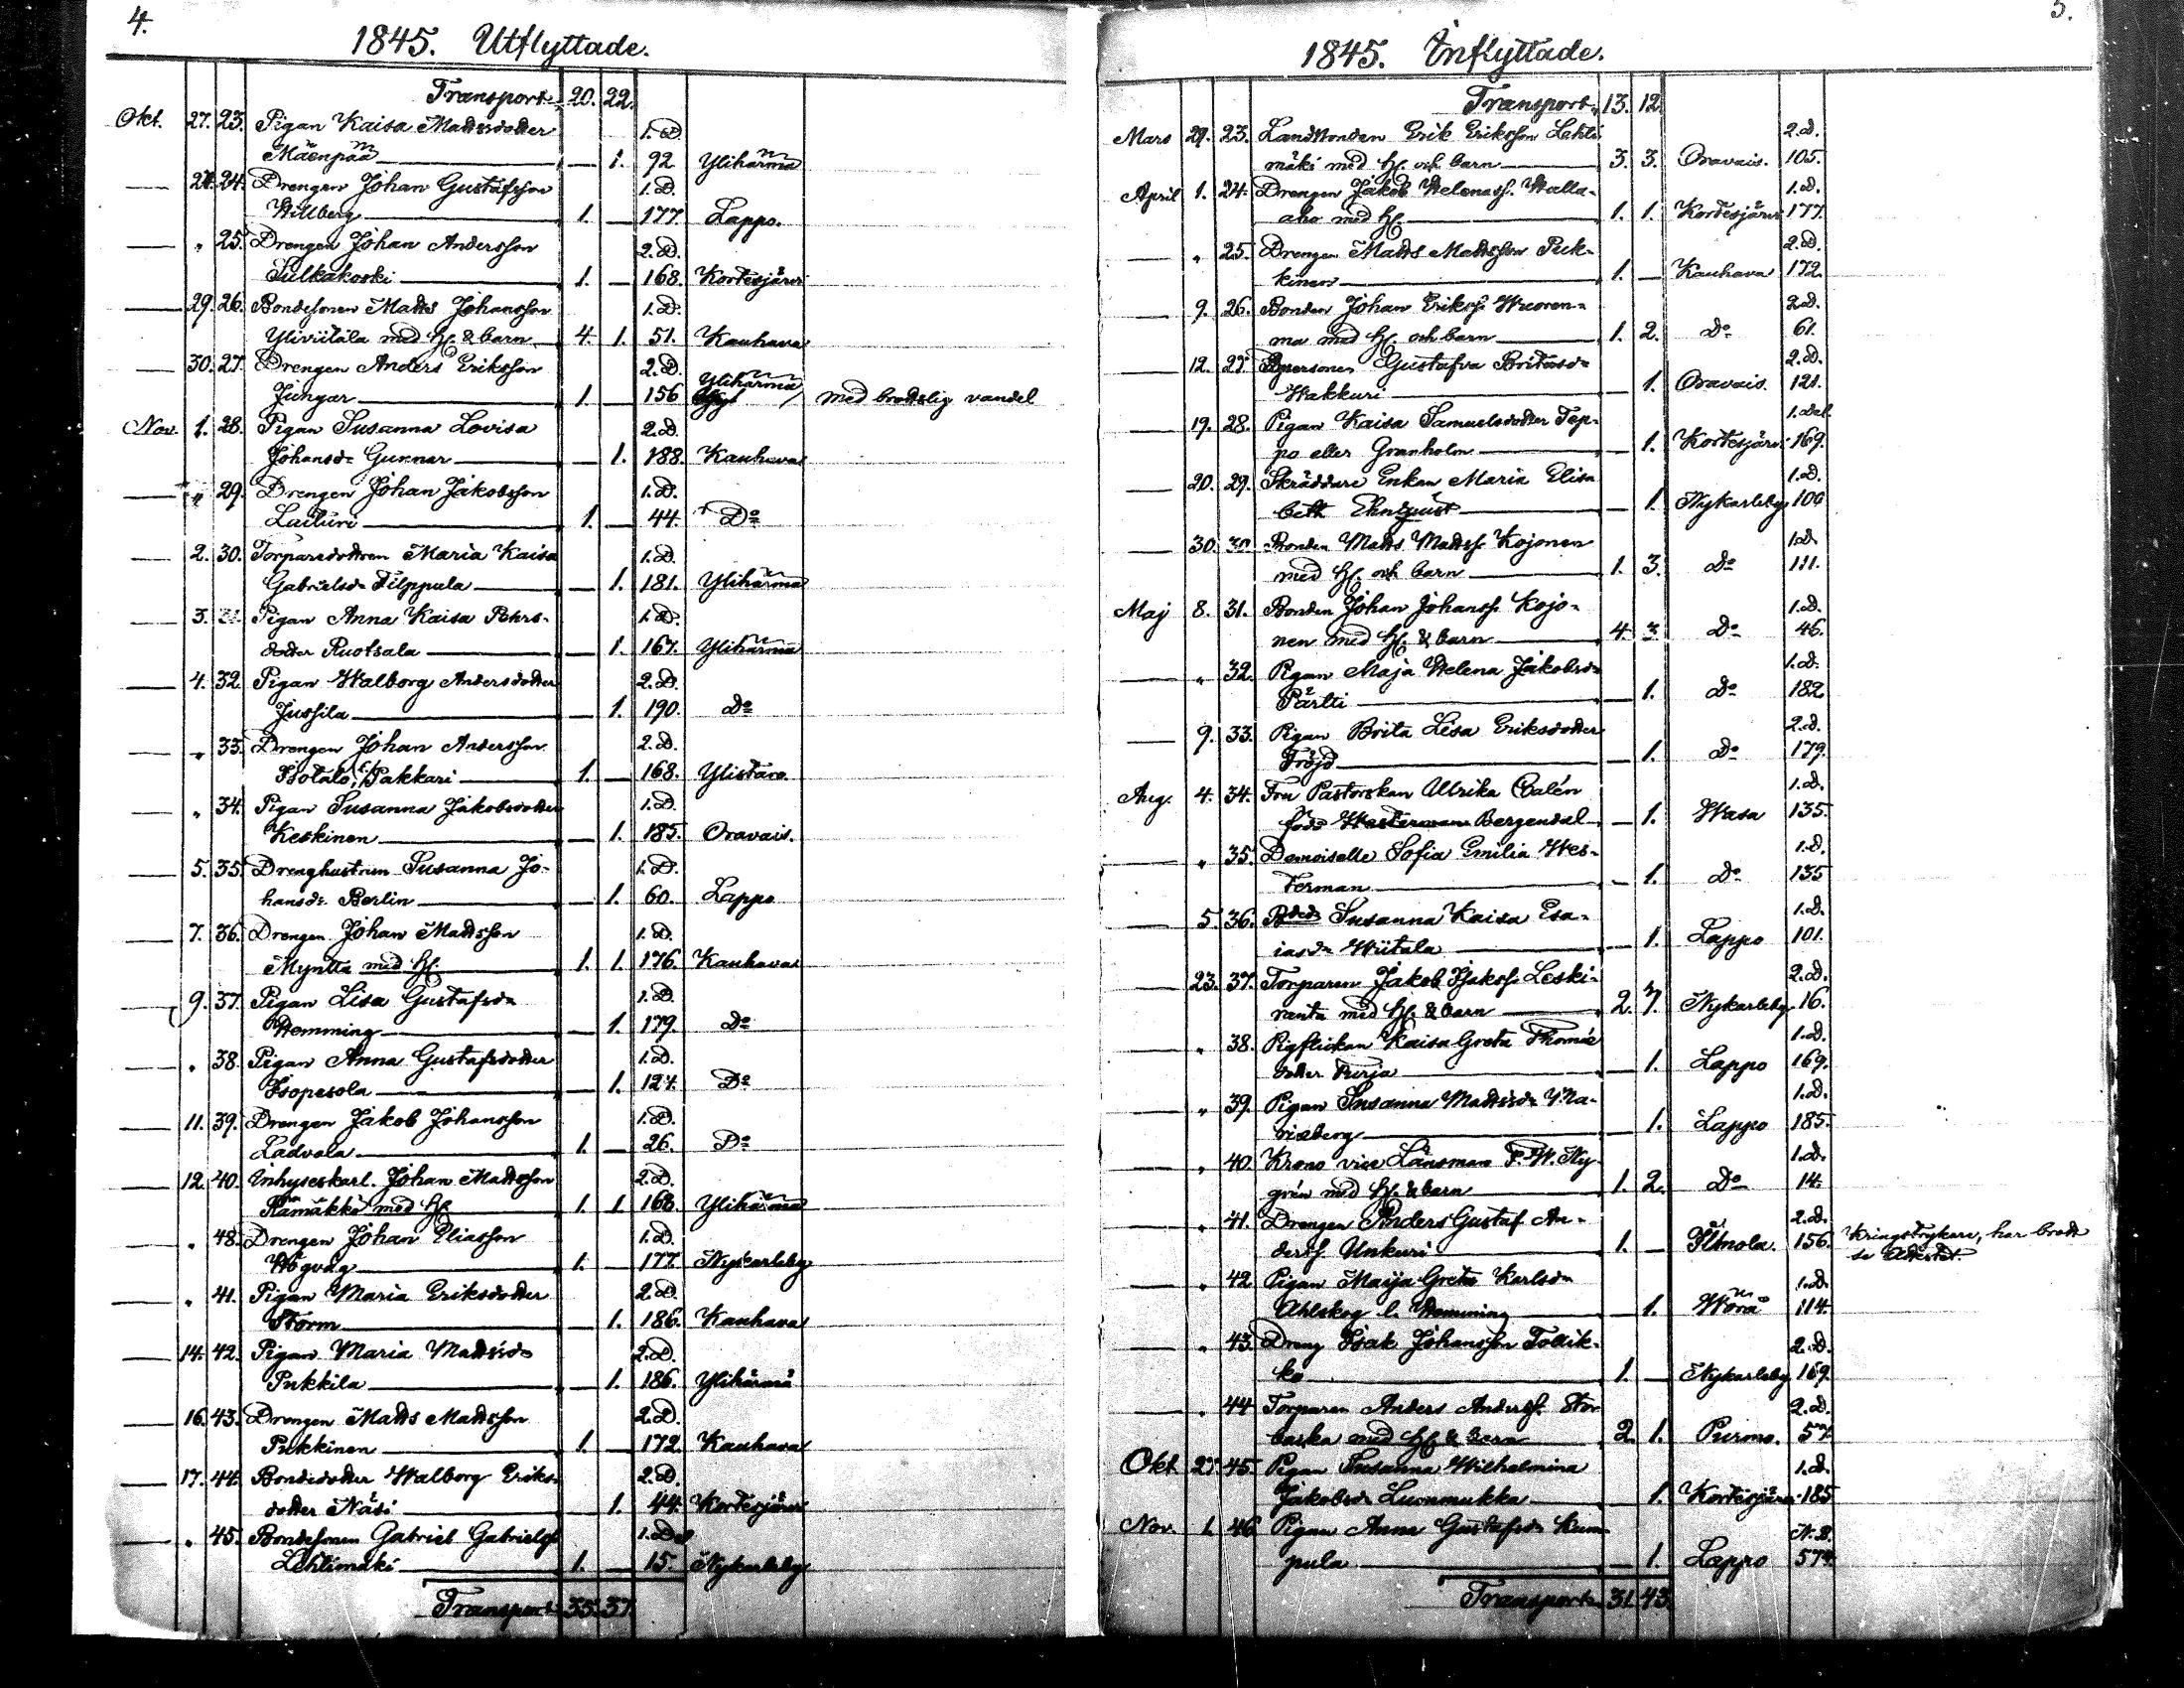 4.
1845. Utflyttade.
Transport 20. 22.
Okt. 27. 23. Pigan Kaisa Mattsdotter 1. D.
Mäenpää — 1. 92 Ylihärmä
— 27. 24. Drengen Johan Gustafsson 1. D.
Willberg 1. — 177. Lappo.
— „ 25. Drengen Johan Andersson 2. D.
Sulkakoski 1. — 168. Kortesjärvi
— 29. 26. Bondesonen Matts Johansson 1. D.
Yliviitala med H. & barn 4. 1. 51. Kauhava
— 30. 27. Drengen Anders Eriksson 2. D.
Jungar 1 — 156 Ylihärmä / med brottslig vandel
Nov. 1. 28. Pigan Susanna Lovisa 2. D.
Johansd:r Gunnar — 1. 188. Kauhava
— „ 29. Drengen Johan Jakobsson 1. D.
Lailuri 1. — 44. D:o
— 2. 30. Torparedottren Maria Kaisa 1. D.
Gabrielsd:r Filppula — 1. 181. Ylihärmä
— 3. 31. Pigan Anna Kaisa Pehrs- 1. D.
dotter Ruotsala — 1. 167. Ylihärmä
— 4. 32. Pigan Walborg Andersdotter 2. D.
Jussila — 1. 190. D:o
— „ 33. Drengen Johan Andersson 2. D.
Isotalo, l. Pakkari 1. — 168. Ylistaro
— „ 34. Pigan Susanna Jakobsdotter 1. D.
Keskinen — 1. 185. Oravais.
— 5. 35. Drenghustrun Susanna Jo- 1. D.
hansd:r Berlin — 1. 60. Lappo
— 7. 36. Drengen Johan Mattsson 1. D.
Myntta med H. 1. 1. 176. Kauhava
— 9. 37. Pigan Lisa Gustafsd:r 1. D.
Hemming — 1. 179. D:o
— „ 38. Pigan Anna Gustafsdotter 1. D.
Isopesola — 1. 127. D:o
— 11. 39. Drengen Jakob Johansson 1. D.
Ladvala 1. — 26. D:o
— 12. 40. Inhyseskarl. Johan Mattsson 2. D.
Rämäkkö med H. 1. 1. 168. Ylihärmä
— „ 48. Drengen Johan Eliasson 1. D.
Högväg 1. — 177. Nykarleby
— „ 41. Pigan Maria Eriksdotter 2. D.
Storm — 1. 186. Kauhava
— 14. 42. Pigan Maria Mattsd:r 2. D.
Pukkila — 1. 186. Ylihärmä
— 16. 43. Drengen Matts Mattsson 2. D.
Pukkinen 1. — 172. Kauhava
— 17. 44. Bondedotter Walborg Eriks- 2. D.
dotter Näsi — 1. 44. Kortesjärvi
— „ 45. Bondesonen Gabriel Gabrielss. 1. Del
Lehtimäki 1. — 15. Nykarleby
Transport 35. 37.
5.
1845. Inflyttade.
Transport. 13. 12.
Mars 29. 23. Landbonden Erik Eriksson Lehti- 2. D.
mäki med H. och barn 3. 3. Oravais. 105.
April 1. 24. Drengen Jakob Helenass. Walla- 1. D.
aho med H. 1. 1. Kortesjärvi 177.
— „ 25. Drengen Matts Mattsson Puk- 2. D.
kinen 1. — Kauhava 172.
— 9. 26. Bonden Johan Erikss. Wuoren- 2. D.
ma med H. och barn 1. 2. D:o 61.
— 12. 27. Gustafva Britasd:r 2. D.
Wakkuri — 1. Oravais. 121.
— 19. 28. Pigan Kaisa Samuelsdotter Tep- 1. Del
po eller Granholm — 1. Kortesjärvi 169.
— 20. 29. Skräddare Enkan Maria Elisa- 1. D.
beth Ehnquist — 1. Nykarleby 100
— 30. 30. Bonden Matts Mattss. Kojonen 1. D.
med H. och barn 1. 3. D:o 111.
Maj 8. 31. Bonden Johan Johanss. Kojo- 1. D.
nen med H. & barn 4. 3. D:o 46.
— „ 32. Pigan Maja Helena Jakobsd:r 1. D.
Pärtti — 1. D:o 182
— 9. 33. Pigan Brita Lisa Eriksdotter 2. D.
Fröjd — 1. D:o 179.
Aug. 4. 34. Fru Pastorskan Ulrika Calén 1. D.
född Westerman Bergendal — 1. Wasa 135.
— „ 35. Demoiselle Sofia Emilia Wes- 1. D.
terman — 1. D:o 135
— 5. 36. Susanna Kaisa Esa- 1. D.
iasd:r Wiitala — 1. Lappo 101.
23. 37. Torparen Jakob Isakss. Leski- 2. D.
ranta med H. & barn 2. 7. Nykarleby 16.
„ 38. Pigflickan Kaisa Greta Thomas 1. D.
dotter Turja — 1. Lappo 169.
— „ 39. Pigan Susanna Mattsd:r Ma- 1. D.
risberg — 1. Lappo 185.
„ 40. Krono vice Länsman F. W. Ny- 1. D.
grén med H. & barn 1. 2. D:o 14.
„ 41. Drengen Anders Gustaf An- 2. D.
derss. Unkuri 1. — Ilmola. 156. Kringstrykare, har brott
„ 42. Pigan Maija Greta Karlsd:r 1. D.
Ahlskog l. Hemming — 1. Wörå 114.
„ 43. Dreng Isak Johansson Tollik- 2. D.
ko 1. — Nykarleby 169.
„ 44. Torparen Anders Anderss. Stor
backa med H. & barn 2. 1. Purmo. 57. 2. D.
Okt. 27. 45. Pigan Susanna Wilhelmina 1. D.
Jakobsd:r Luomukka — 1. Kortesjärvi 185
Nov. 1. 46. Pigan Anna Gustafsd:r Kam-
pula — 1. Lappo 574.
Transport. 31. 43.